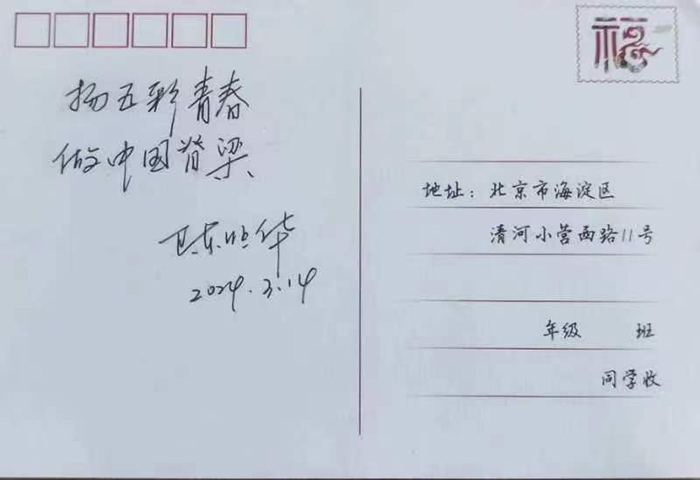 福
扬五彩青春
做中国脊梁
陈旭华
2024.3.14
地址：北京市海淀区
清河小营西路11号
年级 班
同学收